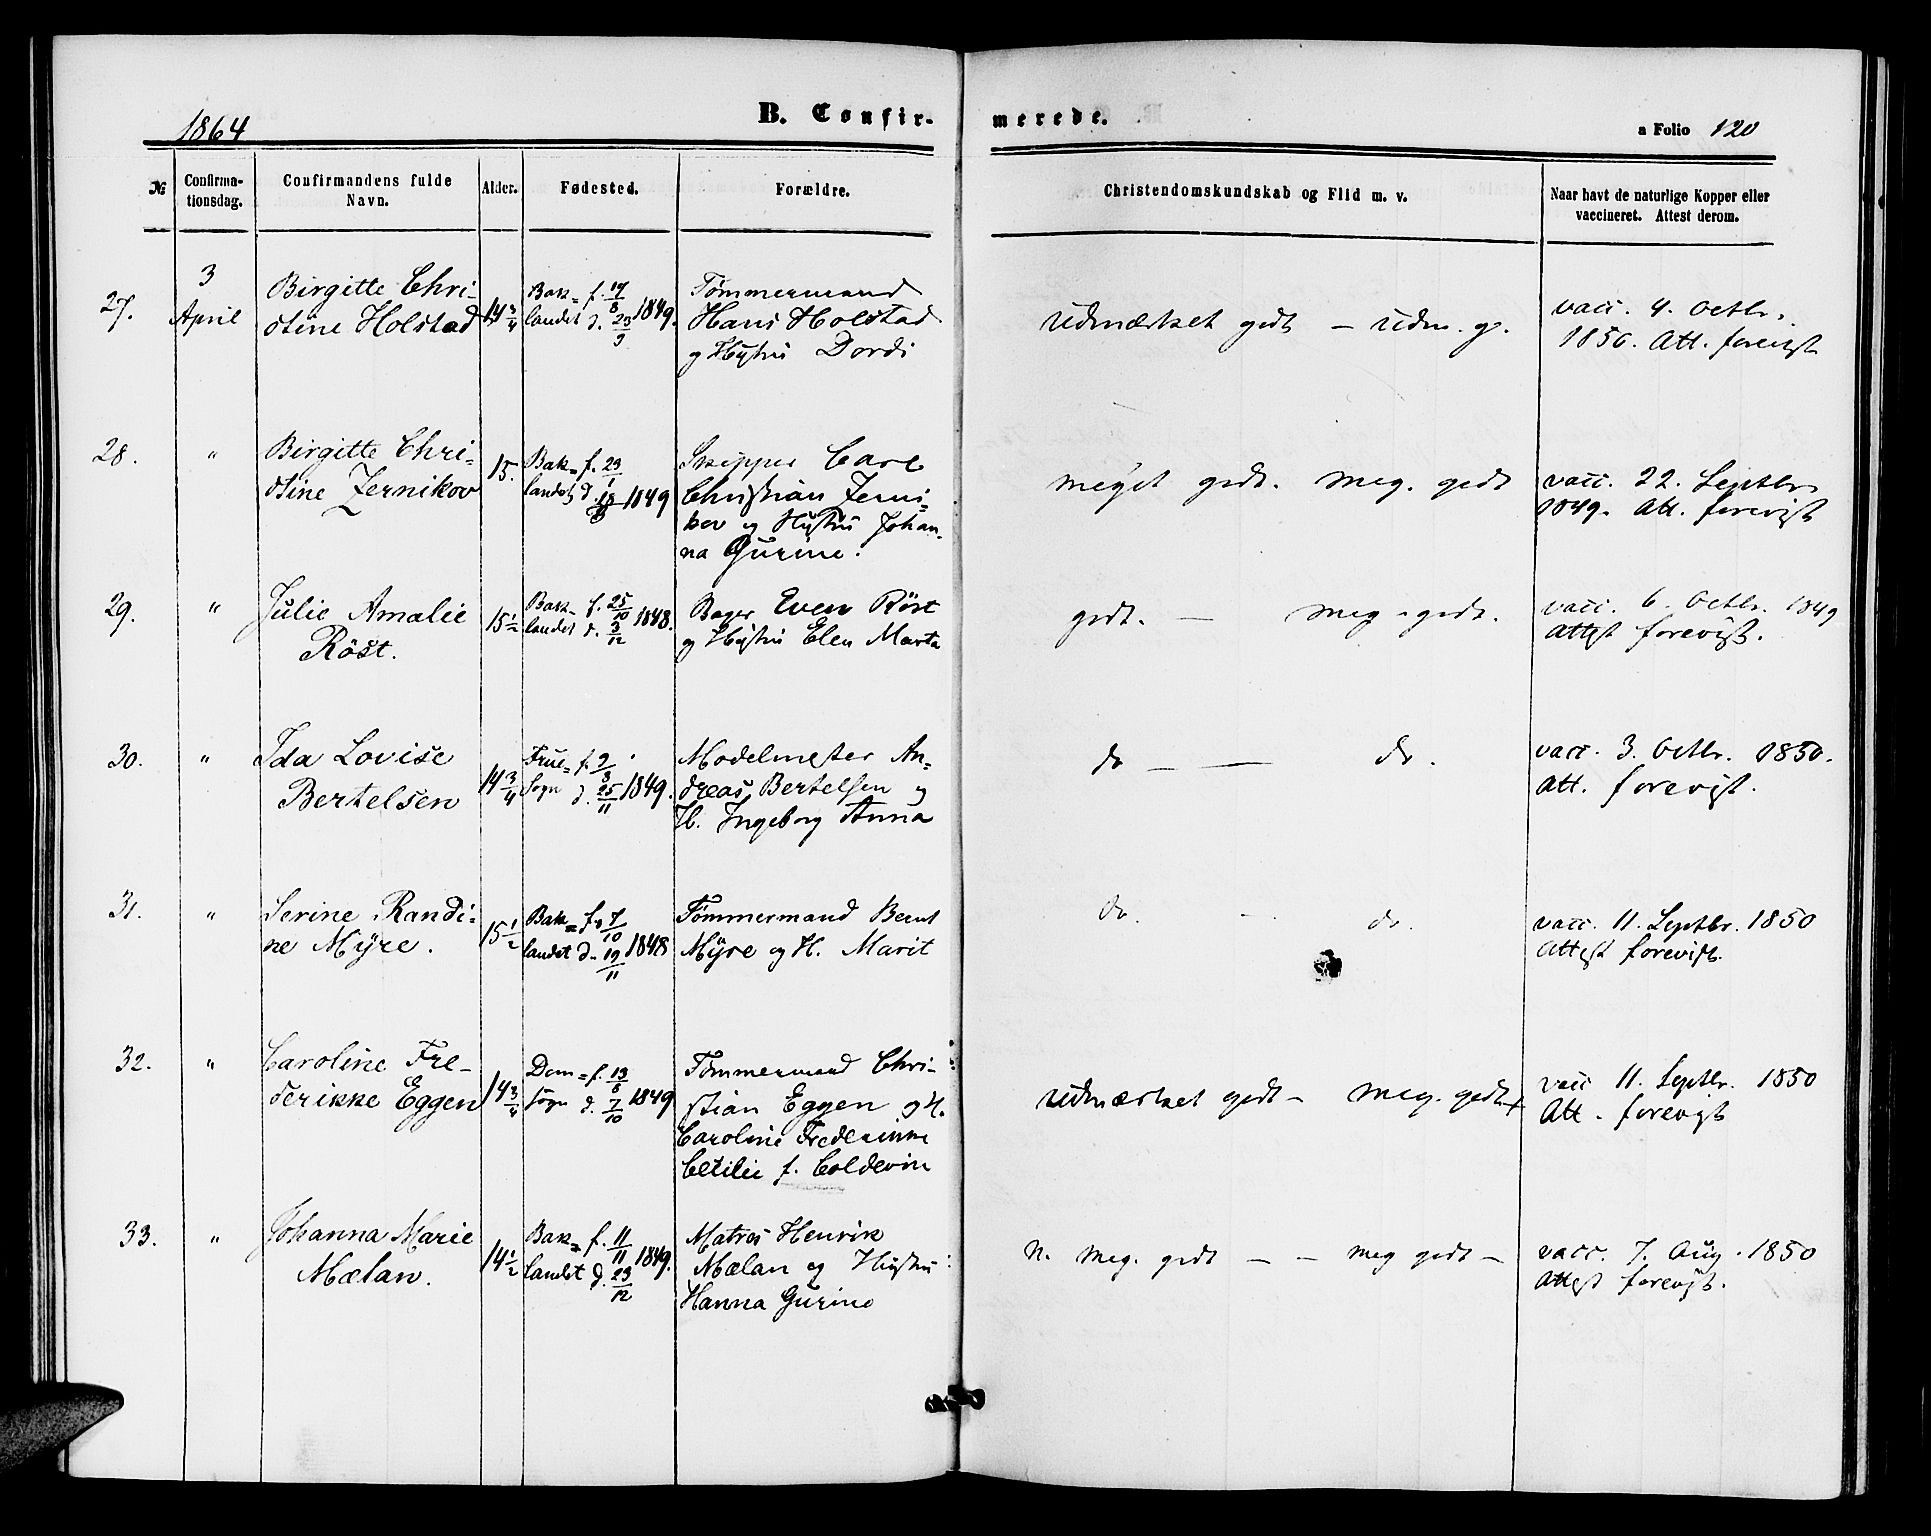 1864
B. Confir-
merede.
a Folio 120
№
Confirma-
tionsdag.
Confirmandens fulde
Navn.
Alder.
Fødested.
Forældre.
Christendomskundskab og Flid m. v.
Naar havt de naturlige Kopper eller
vaccineret. Attest derom.
27.
3
April
Birgitte Chri-
stine Holstad
14 3/4
Bak= f. 17/8
landet d. 23/9 1849.
Tømmermand
Hans Holstad
og Hustru Dordi
udmærket godt — udm. g.
vacc. 4. Octbr.
1850. Att. forevist
28.
"
Birgitte Chri-
stine Zernikov
15.
Bak= f. 23/1
landet d. 1849
Skipper Carl
Christian Zerni-
kov og Hustru Johan-
na Gurine.
meget godt. meg. godt
vacc. 22. Septbr
1849. Att. forevist
29.
"
Julie Amalie
Röst.
15 1/2
Bak- f. 25/10 1848.
landet d. 3/12
Bager Even Röst
og Hustru Elen Marta
godt. — meg. godt.
vacc. 6. Octbr. 1849
Attest forevist.
30.
"
Ida Lovise
Bertelsen
14 3/4
Frue= f. 9/8
Sogn d. 25/11 1849.
Modelmester An-
dreas Bertelsen og
H. Ingeborg Anna
do — — do.
vacc. 3. Octbr. 1850.
Att. forevist.
31.
"
Serine Randi-
ne Myre.
15 1/2
Bak= f. 7/10
landet d. 19/11 1848
Tømmermand Bernt
Myre og H. Marit
do. — do.
vacc. 11. Septbr. 1850
Attest forevist.
32.
"
Caroline Fre-
derikke Eggen
14 3/4
Dom= f. 13/8
sogn d. 7/10 1849
Tømmermand Chri-
stian Eggen og H.
Caroline Frederikke
Cecilie f. Coldevin
udmærket godt — meg. godt +
vacc 11. Septbr. 1850
Att. forevist
33.
"
Johanna Marie
Mælan.
14 1/2
Bak= f. 11/11 1849.
landet d. 23/12
Matros Henrik
Mælan og Hustru
Hanna Gurine
n. meg. godt — — meg godt —
vacc. 7. Aug. 1850
Attest forevist.